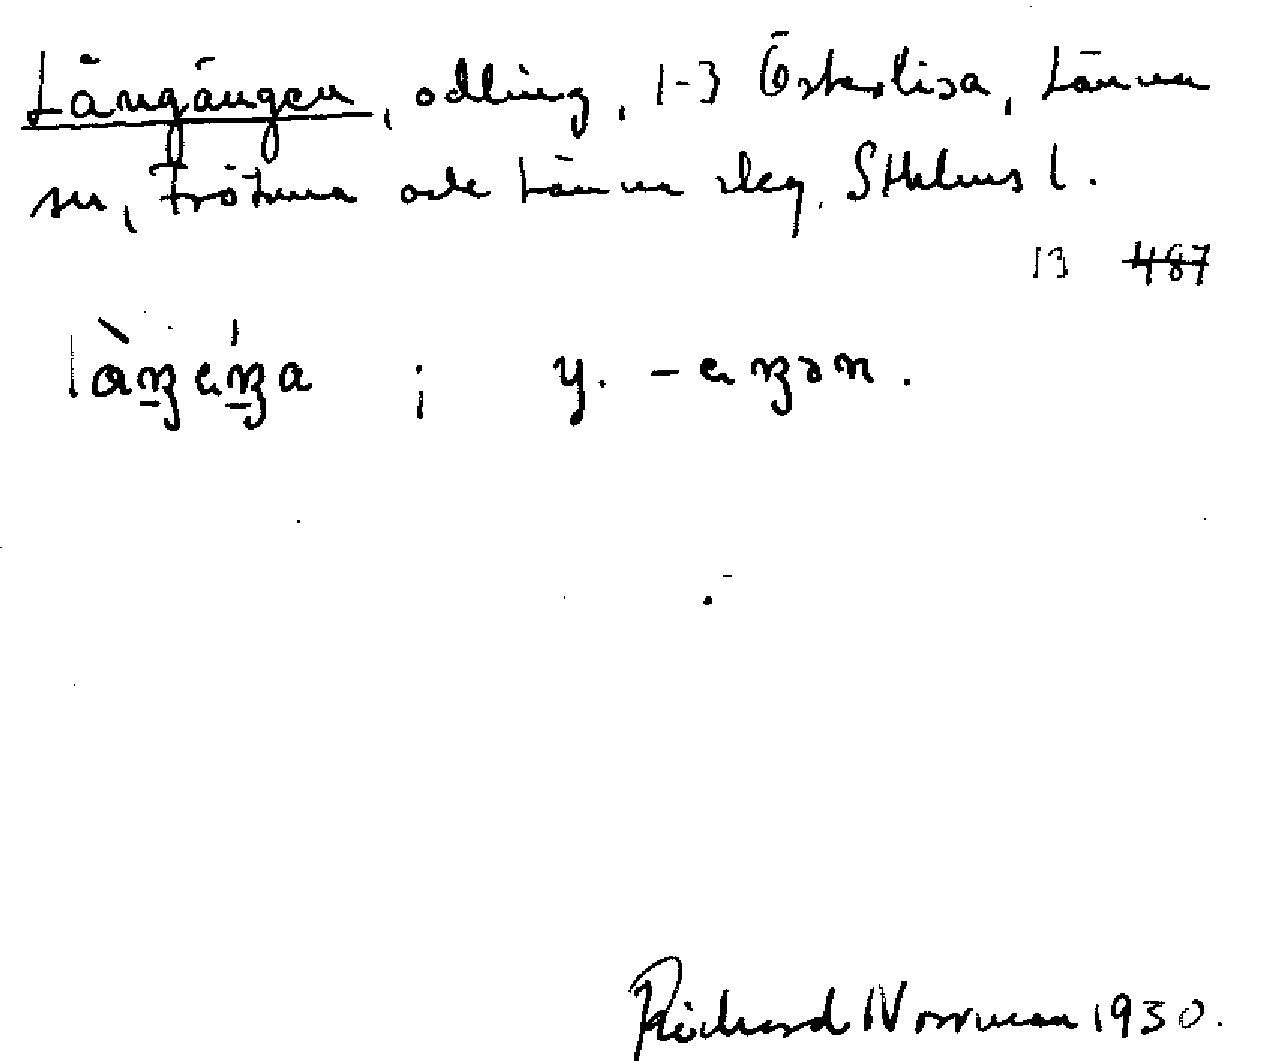 Långängen, odling, 1-3 Österlisa, Länna
sn, Frötuna och Länna skg, Sthlms l.
13 487
y.
Richard Norrman 1930.